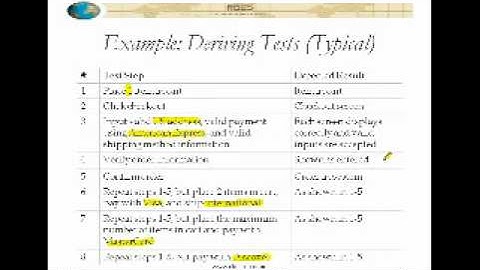 Example: Deriving Tests (Typical)
# Test Step Expected Result
1 Place 1 item in cart Item in cart
2 Click checkout Checkout screen
3 Input valid US address, valid payment using American Express, and valid shipping method information Each screen displays correctly and valid inputs are accepted
4 Verify order information Shown as entered
5 Confirm order Order in system
6 Repeat steps 1-5, but place 2 items in cart, pay with Visa, and ship international As shown in 1-5
7 Repeat steps 1-5, but place the maximum number of items in cart and pay with MasterCard As shown in 1-5
8 Repeat steps 1-5, but pay with Discover As shown in 1-5